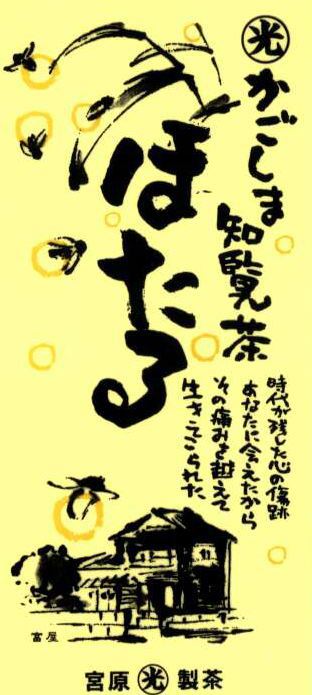 光
かごしま
知覧茶
ほたる
時代が残した心の傷跡
あなたに会えたから
その痛みを越えて
生きてこられた
富屋
宮原 光 製茶